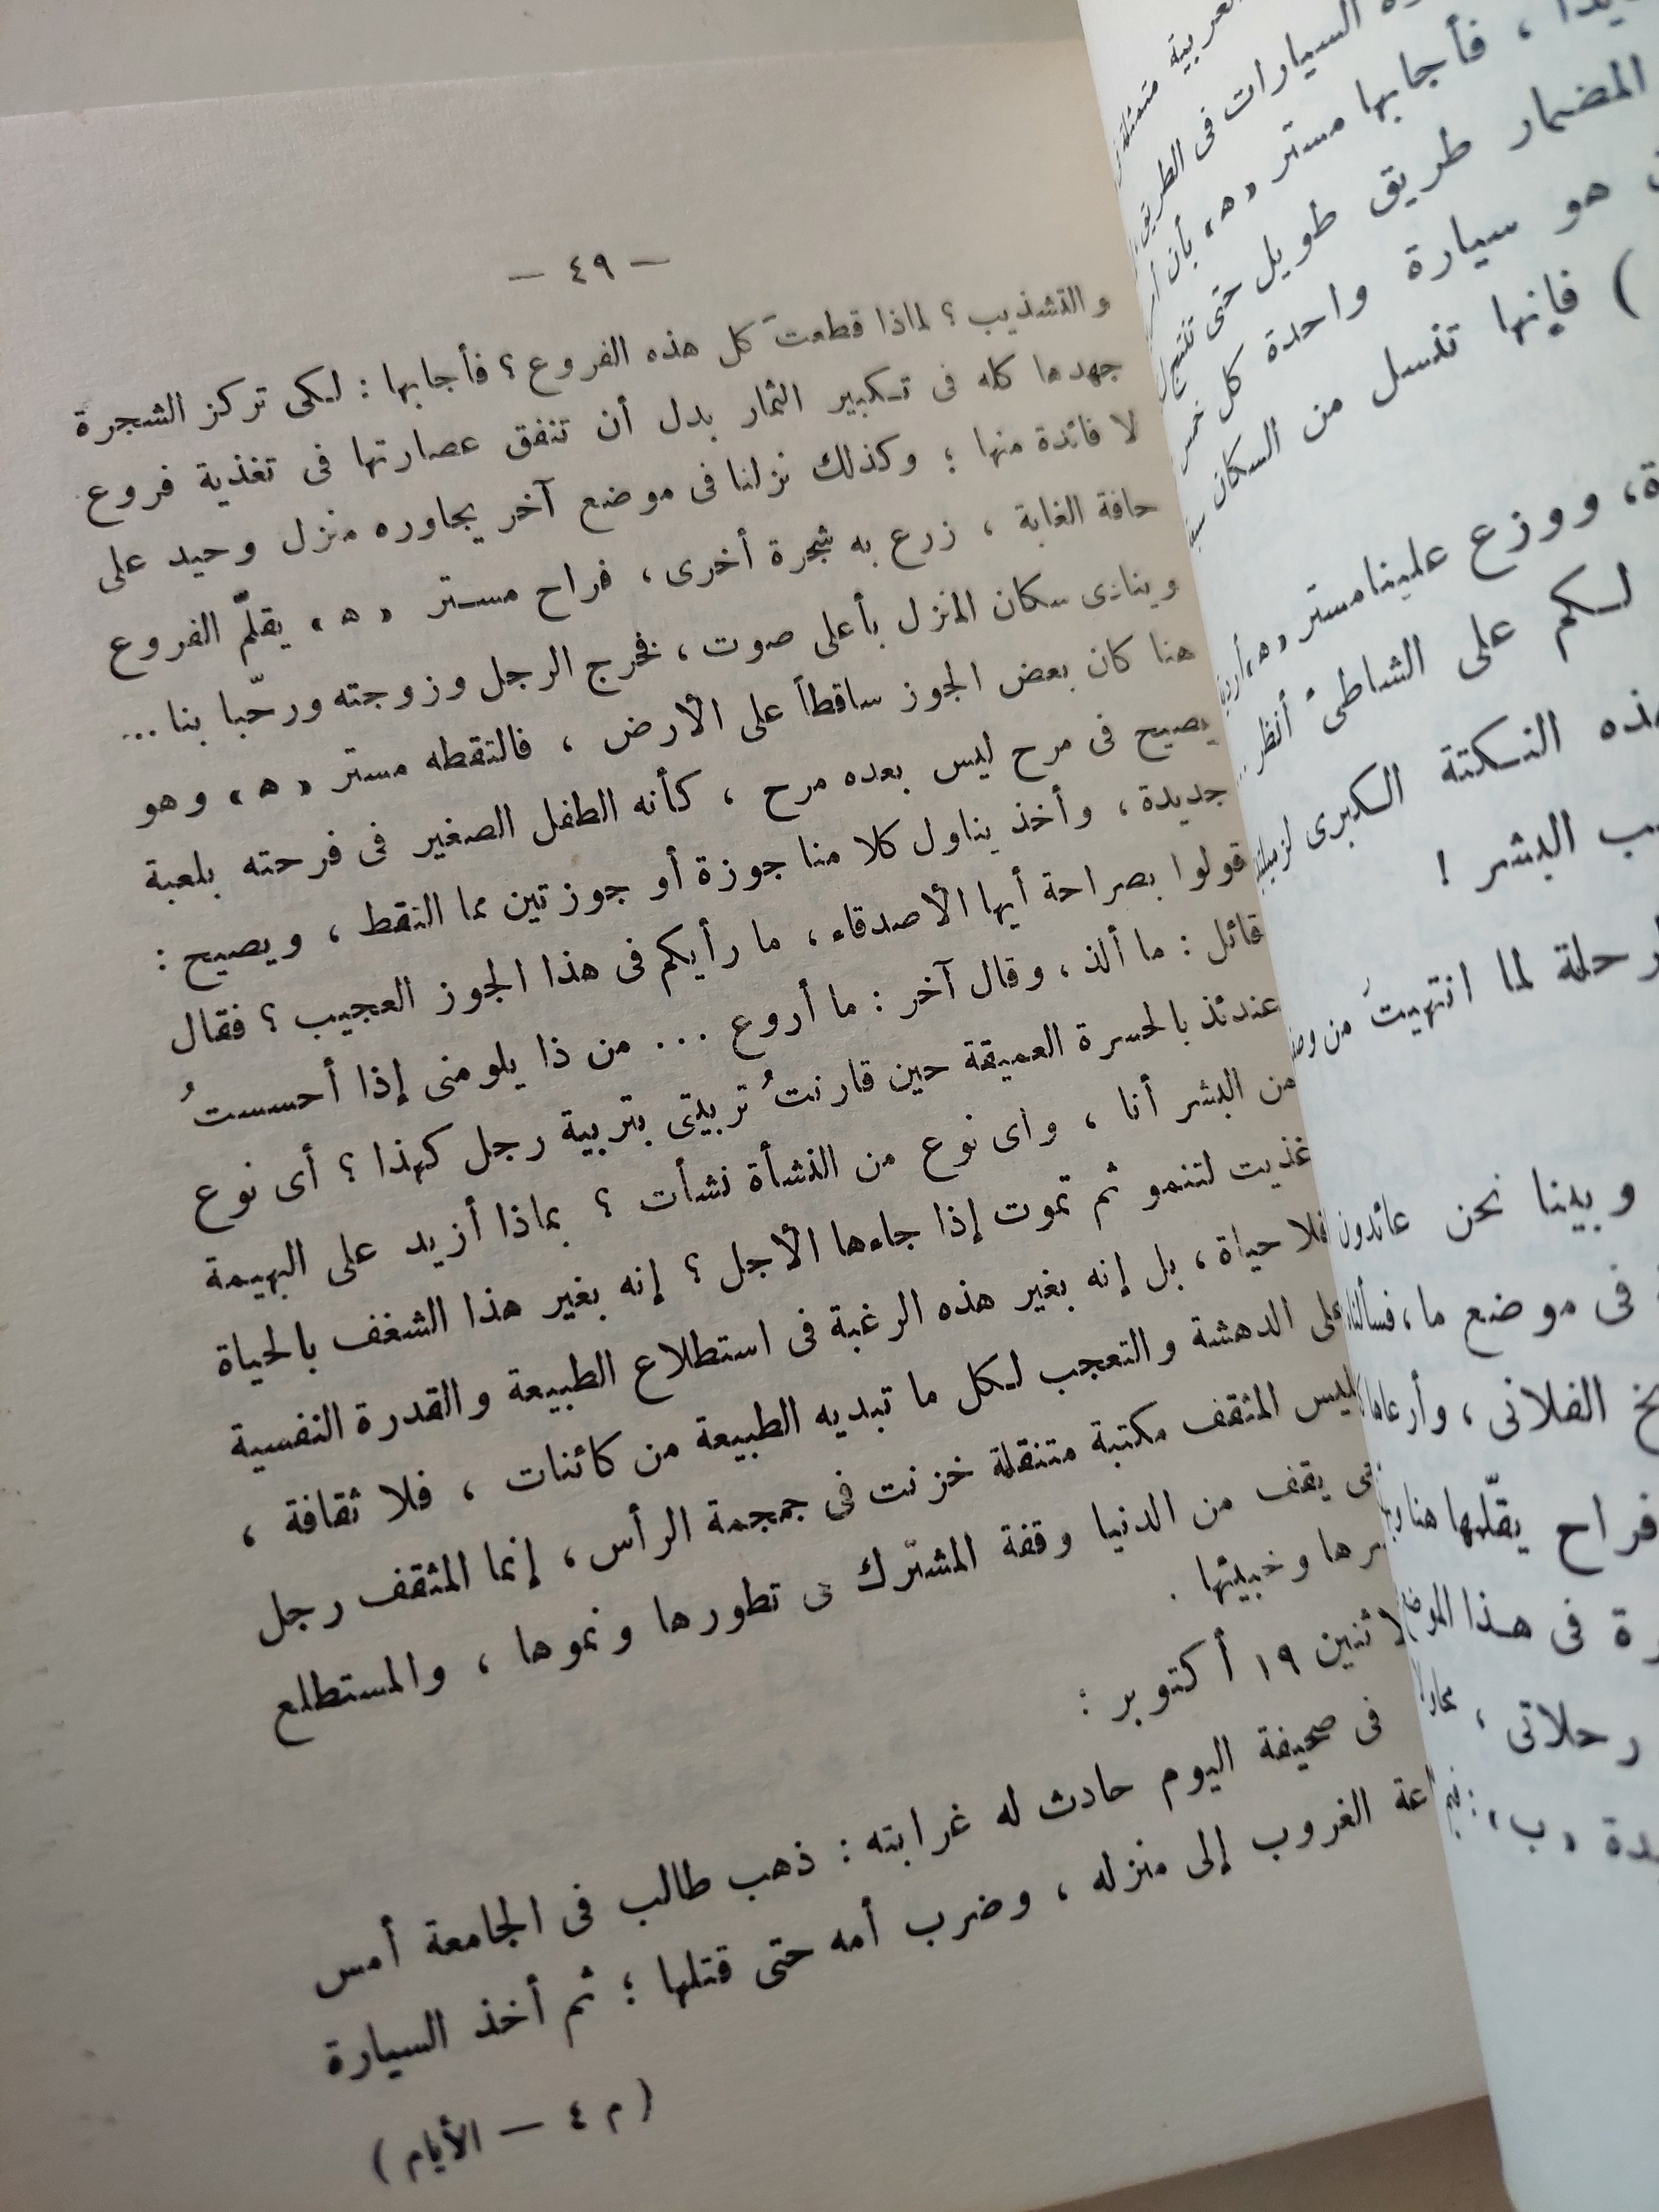 — ٤٩ —
والتشذيب ؟ لماذا قطعتَ كل هذه الفروع ؟ فأجابها : لكى تركز الشجرة
جهدها كله فى تكبير الثمار بدل أن تنفق عصارتها فى تغذية فروع
لا فائدة منها ؛ وكذلك نزلنا فى موضع آخر يجاوره منزل وحيد على
حافة الغابة ، زرع به شجرة أخرى ، فراح مستر « ه » يقلّم الفروع
وينادى سكان المنزل بأعلى صوت ، فخرج الرجل وزوجته ورحّبا بنا ...
هنا كان بعض الجوز ساقطاً على الأرض ، فالتقطه مستر « ه » وهو
يصيح فى مرح ليس بعده مرح ، كأنه الطفل الصغير فى فرحته بلعبة
جديدة ، وأخذ يناول كلا منا جوزة أو جوزتين مما التقط ، ويصيح :
قولوا بصراحة أيها الأصدقاء ، ما رأيكم فى هذا الجوز العجيب ؟ فقال
قائل : ما ألذ ، وقال آخر : ما أروع ... من ذا يلومنى إذا أحسستُ
عندئذ بالحسرة العميقة حين قارنتُ تربيتى بتربية رجل كهذا ؟ أى نوع
من البشر أنا ، واى نوع من النشأة نشأت ؟ بماذا أزيد على البهيمة
غذيت لتنمو ثم تموت إذا جاءها الأجل ؟ إنه بغير هذا الشغف بالحياة
فلا حياة ، بل إنه بغير هذه الرغبة فى استطلاع الطبيعة والقدرة النفسية
على الدهشة والتعجب لكل ما تبديه الطبيعة من كائنات ، فلا ثقافة ،
ليس المثقف مكتبة متنقلة خزنت فى جمجمة الرأس ، إنما المثقف رجل
يقف من الدنيا وقفة المشترك فى تطورها ونموها ، والمستطلع
وخبيئها .
١٩ أكتوبر :
فى صحيفة اليوم حادث له غرابته : ذهب طالب فى الجامعة أمس
الغروب إلى منزله ، وضرب أمه حتى قتلها ؛ ثم أخذ السيارة
( م ٤ — الأيام )
العربية متمثلة
السيارات فى الطريق
، فأجابها مستر « ه » بأن
المضمار طريق طويل حتى تنتج
هو سيارة واحدة كل خمس
) فإنها تنسل من السكان
، ووزع علينا مستر « ه »
لكم على الشاطئ أنظر
النكتة الكبرى
البشر !
رحلة لما انتهيتُ من
وبينا نحن عائدون
فى موضع ما ،
الفلانى ،
فراح يقلّمها هنا
فى هذا الموضع
رحلاتى ،
« ب » :